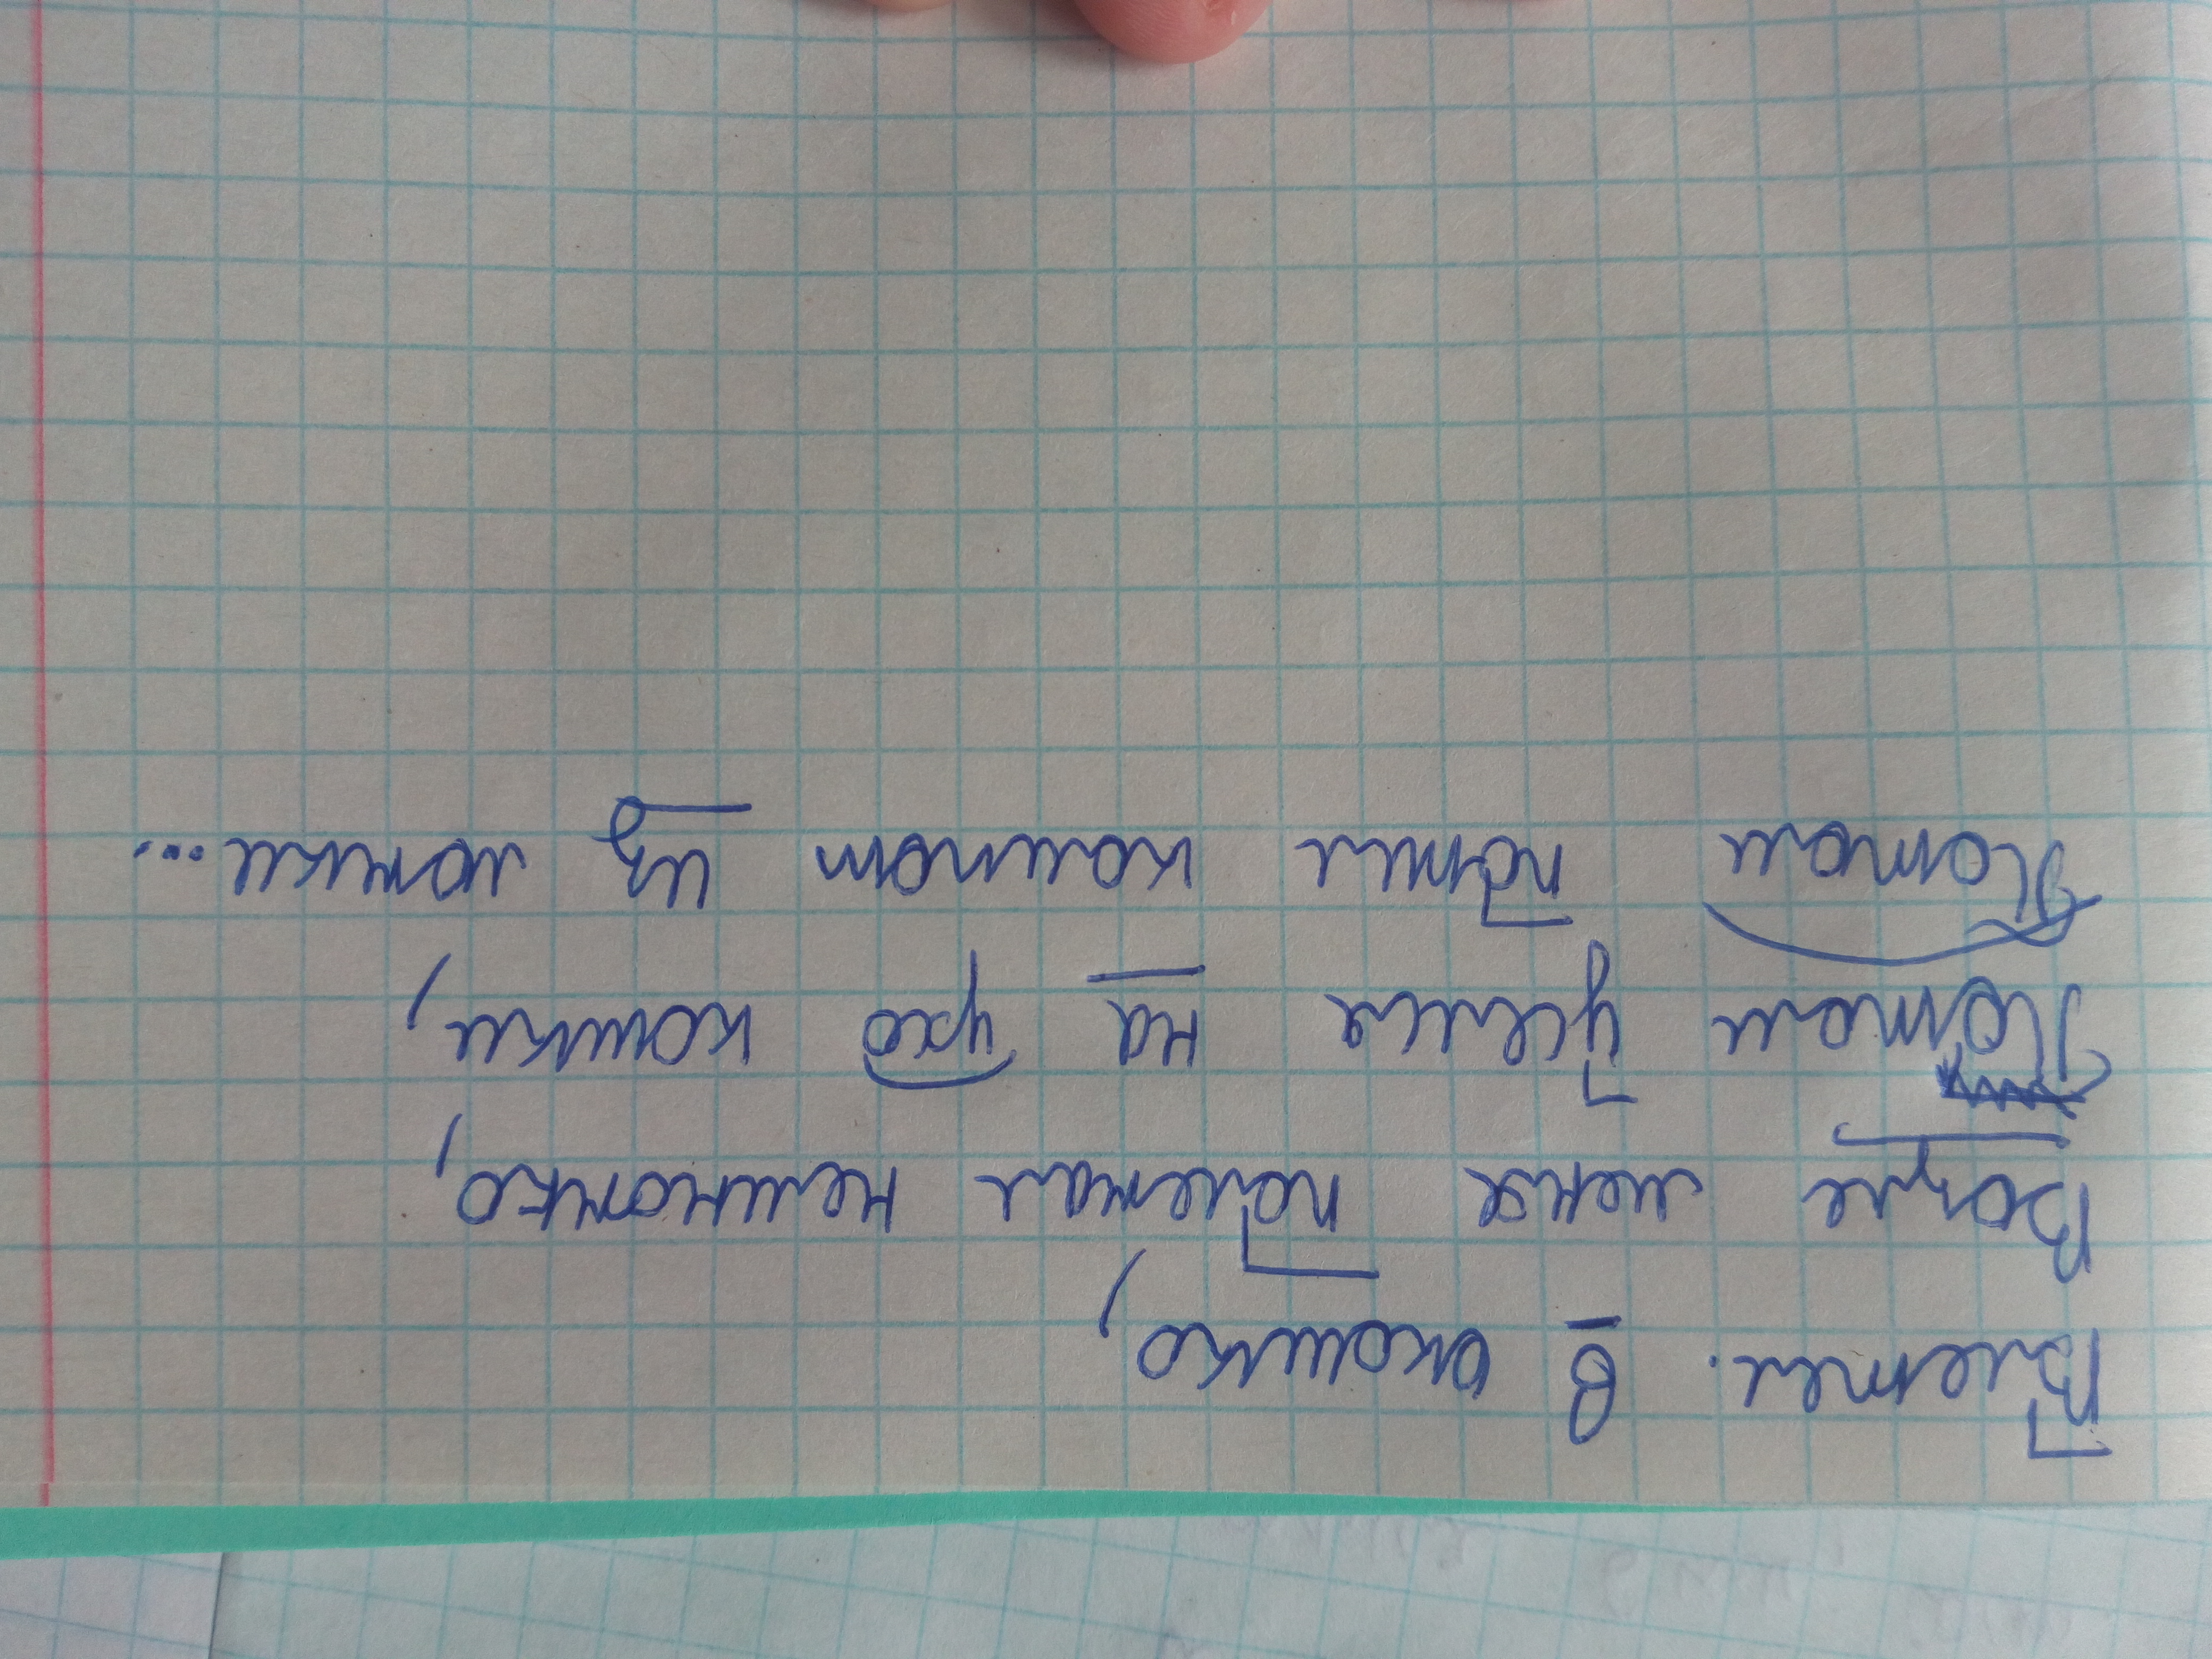 Влетел. в окошко,
Возле меня полетал немножко,
Потом уселся на ухо кошки,
Потом попил компот из ложки...